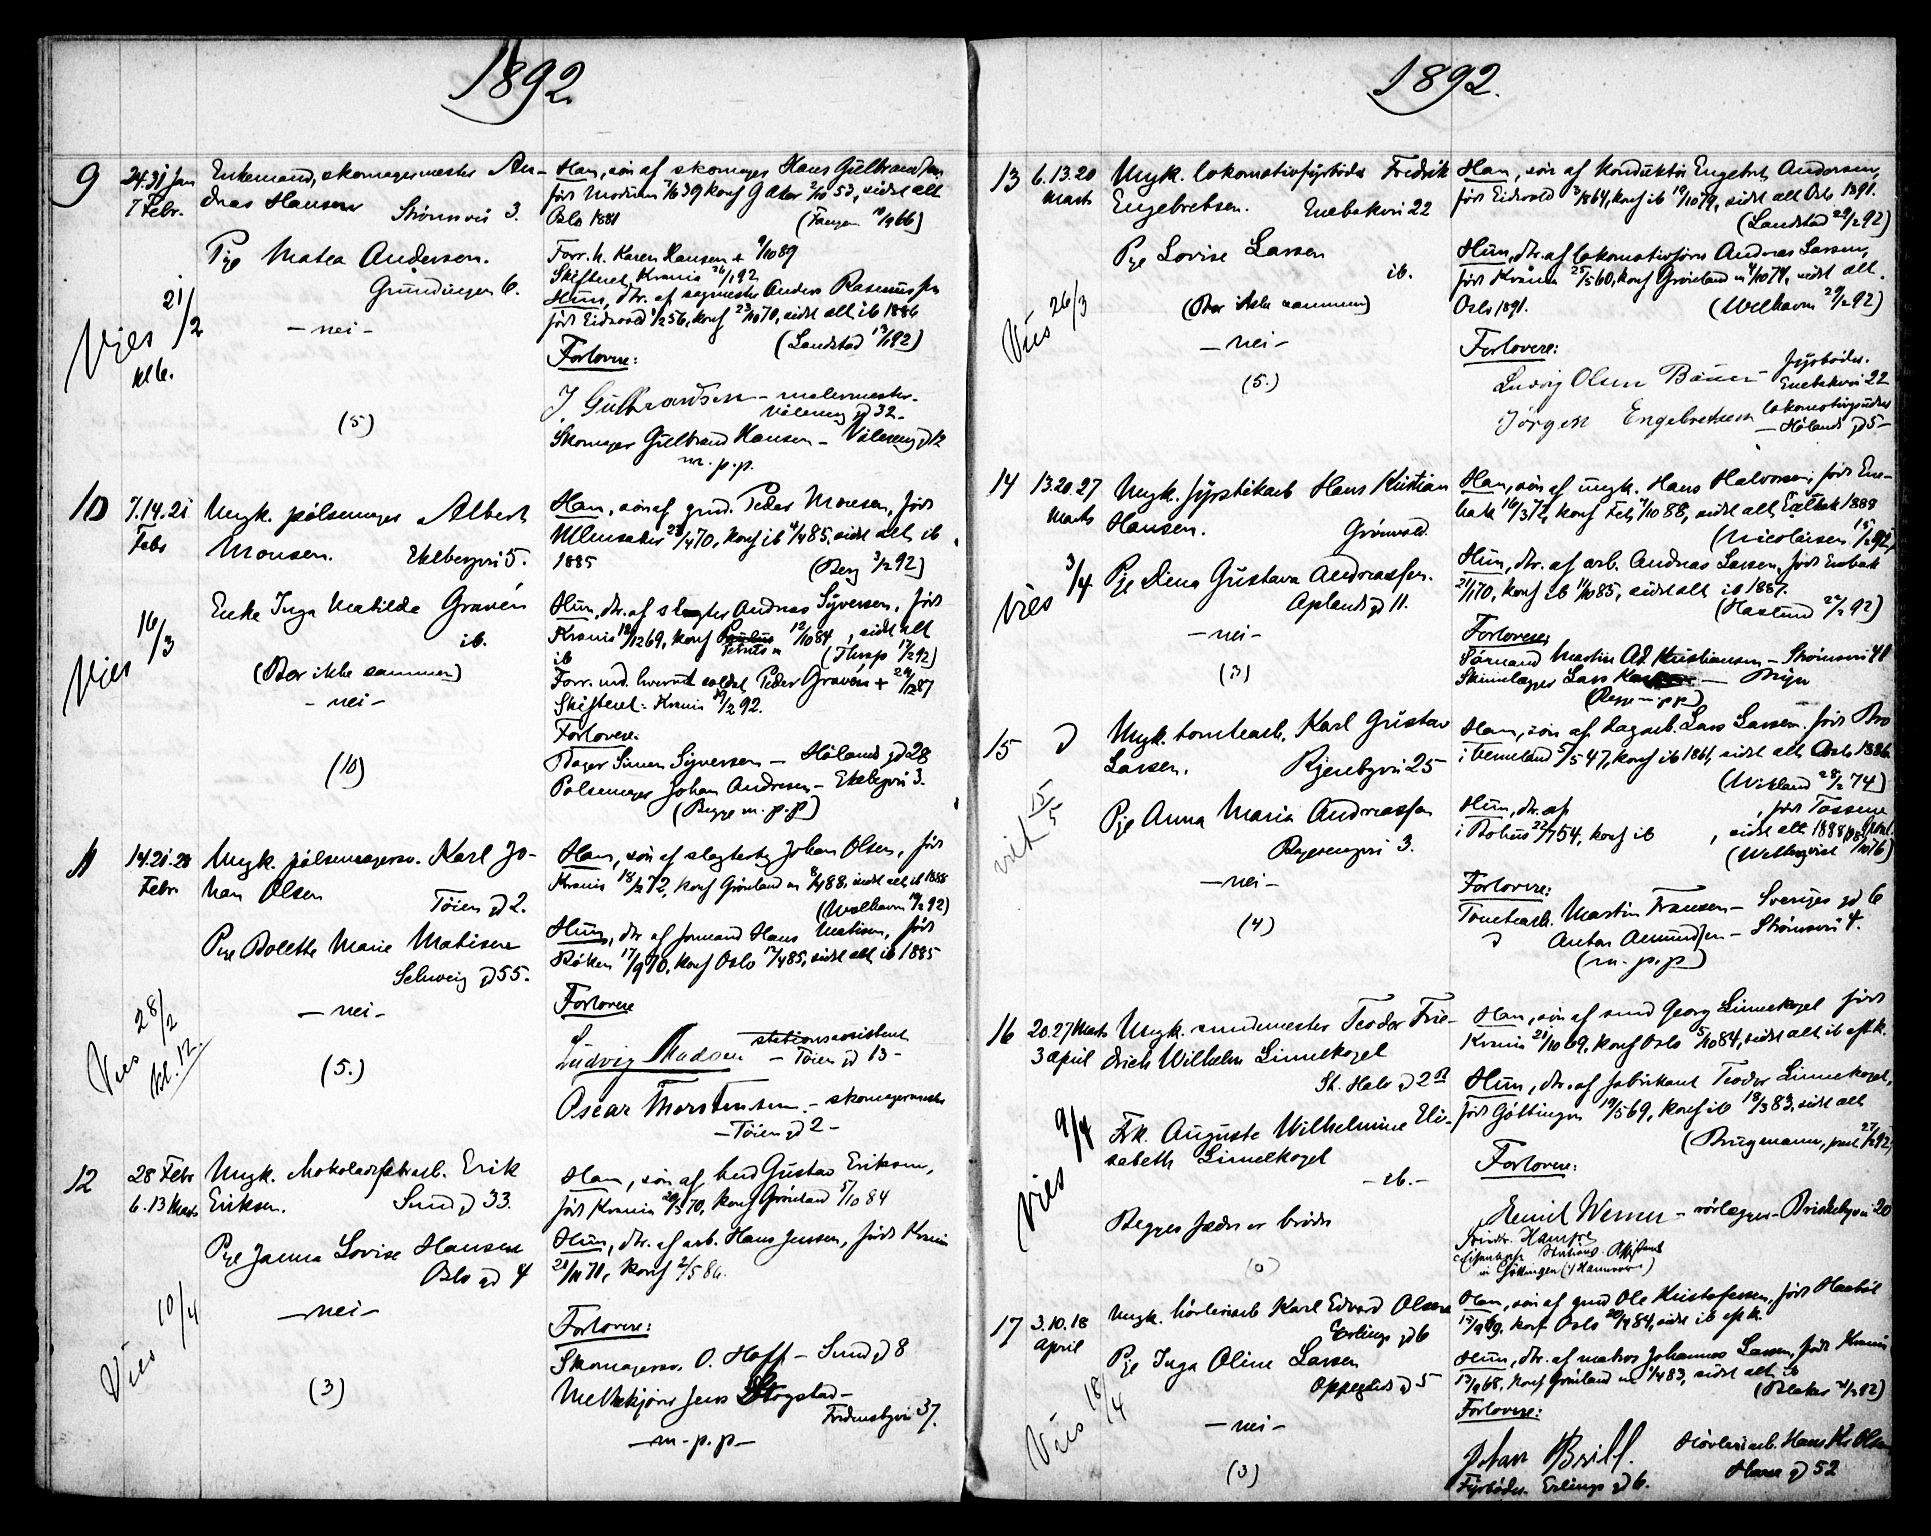 1892
9
24.31 Jan
7 Febr.
Enkemand, skomagermester An-
dreas Hansen Strømsvei 3.
Pige Matea Andersen.
Gründingen 6.
- nei -
Vies 21/2
kl 6.
(5)
Han, søn af skomager Hans Gulbrandsen
født Modum 7/6 39 konf G Aker 2/10 53, sidst alt
Oslo 1881
Forr. h. Karen Hansen + 9/10 89
Skifteret, Krania 26/1 92
Hun, dtr. af sagmester Anders Rasmussen
født Eidsvold 1/2 56, konf 23/10 70, sidst alt ib 1886
(Landstad 13/1 92)
Forlovere:
J Gulbrandsen - malermester
Vålereng gd 32 -
Skomager Gulbrand Hansen - Vålereng gd 12
m. p. p.
10
7.14.21
Febr
Ungk. pølsemager Albert
Monsen. Ekebergvei 5.
Enke Inga Matilde Gravén
ib.
(Bor ikke sammen)
- nei -
Vies 16/3
(10)
Han, søn af grd. Peder Monsen, født
Ullensaker 28/4 70, konf ib 4/4 85, sidst alt ib
1885
(Berg 3/2 92)
Hun, dtr. af slagter Andreas Syversen, født
Krania 12/12 69, konf Petrus m 12/10 84, sidst alt
ib (Thrap 17/2 92)
Forr. m. hvervet soldat Peder Gravén + 24/12 87
Skifteret. Krania 19/2 92.
Forlovere.
Bager Simen Syversen - Hølands gd 28
Pølsemager Johan Andresen - Ekebgvei 3.
(Begge m. p. p)
11
14.21.28
Febr.
Ungk. pølsemagersv. Karl Jo-
han Olsen Tøien gd 2.
Pige Bolette Marie Matisen
Schweig gd 55.
- nei -
Vies 28/2
kl. 12.
(5.)
Han, søn af slagter Johan Olsen, født
Krania 18/2 72, konf Grønland m 8/4 88, sidst alt ib 1888
(Welhaven 19/2 92)
Hun, dtr af formand Hans Matisen, født
Røken 17/9 70, konf Oslo 12/4 85, sidst alt ib 1885
Forlovere
Ludvig Madsen stationsassistent
- Tøien gd 13 -
Oscar Thorstensen. - skomagermester
- Tøien gd 2 -
12
28 Febr
6.13 Marts
Ungk. Erik
Eriksen. Sund gd 33.
Pige Janna Lovise Hansen
Oslo gd 4
- nei -
Vies 10/4
(3)
Han, søn af Gustav Eriksen,
født Krania 29/3 70, konf Grønland 5/10 84
Hun, dtr. af arb. Hans Jensen, født Krania
21/11 71, konf 2/5 86.
Forlovere:
Skomagersv. O. Hoff - Sund gd 8
Melkekjører Jens Skogstad -
Fredensbgvei 37.
- m. p. p -
1892.
13
6.13.20
Marts
Ungk. lokomotivfyrbøder Fredrik
Engebretsen. Enebakvei 22
Pige Lovise Larsen
ib.
(Bor ikke sammen)
- nei -
Vies 26/3
(5.)
Han, søn af Konduktør Engebret Andersen,
født Eidsvold 3/1 864, konf ib 19/10 79, sidst alt Oslo 1891.
(Landstad 29/2 92)
Hun, dtr. af lokomotivfører Andreas Larsen,
født Krania 25/5 60, konf Grønland m 4/10 74, sidst alt.
Oslo 1891. (Welhaven 29/2 92)
Forlovere:
Ludvig Olsen - fyrbøder.
Enebakvei 22
Jørgen Engebretsen
- Hølands gd 5 -
14
13.20.27
Marts
Ungk. fyrstikarb Hans Kristian
Hansen. Grønvold.
Pige Dina Gustava Andreassen.
Aplands gd 11.
- nei -
Vies 3/4
(3)
Han, søn af ungk. Hans Halvorsen, født Ene-
bak 16/3 72, konf Feb 7/10 88, sidst alt Enebak 1889
(Nicolaisen 15/2 92)
Hun, dtr. af arb. Andreas Larsen, født Enebak
21/1 70, konf ib 11/10 85, sidst alt ib 1887.
(Haslund 24/2 92)
Forlovere:
Martin Ad. Kristiansen - Strømsvei 41
Skinnelægger Lars - Bryn
(Begge m. p. p)
15
Ungk. tomtearb. Karl Gustav
Larsen. Kjerrbgvei 25
Pige Anna Maria Andreassen
3.
- nei -
vit 15/5
(4)
Han, søn af dagarb. Lars Larsen, født Bro
i Vermland 5/5 47, konf ib 1861, sidst alt Oslo 1886
(Wikland 28/2 74)
Hun, dtr. af , født Tossene
i Bohus 22/7 54, konf ib , sidst alt 1888
Forlovere:
Tomtearb. Martin Fransen - Sveriges gd 6
Anton Amundsen - Strømsvei 4.
(m. p. p)
16
20.27 Marts
3 april
Ungk. smedmester Teodor Frie-
drich Wilhelm Linnekogel
St. Halv gd 2
Frk. Auguste Wilhelmine Eli-
sabeth Linnekogel
- ib. -
Begges fædre er brødre
Vies 9/4
(0)
Han, søn af smed Georg Linnekogel født
Krania 21/10 69, konf Oslo 5/10 84, sidst alt ib eft k.
Hun, dtr. af fabrikant Teodor Linnekogel,
født Göttingen 19/5 69, konf ib 18/3 83, sidst alt
(Brugmann, past 27/2 92)
Forlovere:
Emil Werner - rørlægger - Briskebyvei 20
Friedr. Hampe
Stations-Assistent
in Göttingen (Hannover)
17
3.10.18
April
Ungk. høvleriarb Karl Edvard Olsen
Erlings gd 6
Pige Inga Oline Larsen
Oppegårds gd 5
- nei -
Vies 18/4
(3)
Han, søn af grd Ole Kristofersen, født
13/9 69, konf Oslo 20/4 84, sidst ib eft k.
Hun, dtr. af matros Johannes Larsen, født Krania
13/9 68, konf Grønland m 1/4 83, sidst alt ib
(Blakar 4/2 92)
Forlovere:
Johan Brill.
Fyrbøder. Erlings gd 6.
Høvleriarb. Hans Kr. Olsen
Harse gd 52